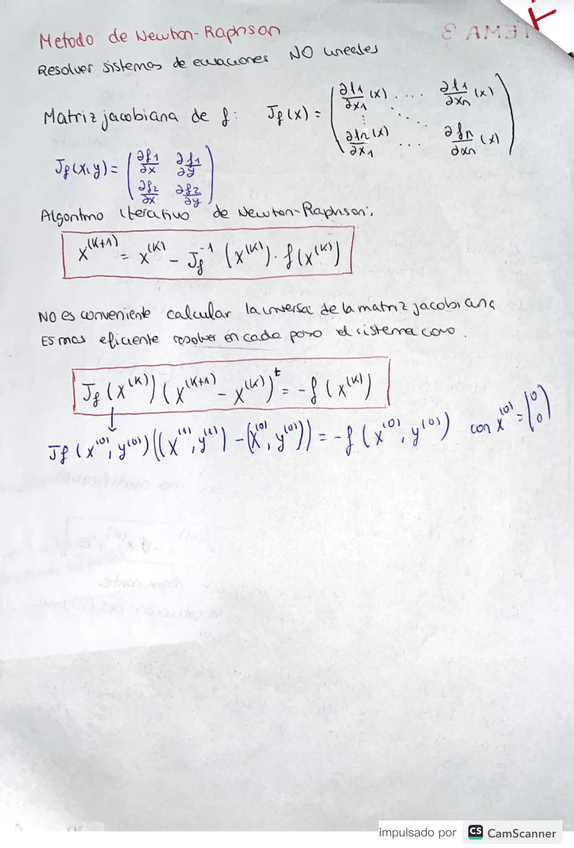 TEMA 3
Metodo de Newton-Raphson
Resolver sistemas de ecuaciones NO lineales
Matriz jacobiana de f: Jf(x) = ( ∂f1/∂x1 (x) .... ∂f1/∂xn (x) ⋮ ⋱ ∂fn/∂x1 (x) ... ∂fn/∂xn (x) )
Jf(x,y) = ( ∂f1/∂x ∂f1/∂y ∂f2/∂x ∂f2/∂y )
Algoritmo iterativo de Newton-Raphson:
x^(k+1) = x^(k) - Jf^-1 (x^(k)) · f(x^(k))
NO es conveniente calcular la inversa de la matriz jacobiana
Es mas eficiente resolver en cada paso el sistema como.
Jf (x^(k)) (x^(k+1) - x^(k))^t = -f(x^(k))
↓
Jf (x^(0), y^(0)) ((x^(1), y^(1)) - (x^(0), y^(0))) = -f (x^(0), y^(0)) con x^(0) = (0 0)
impulsado por CS CamScanner